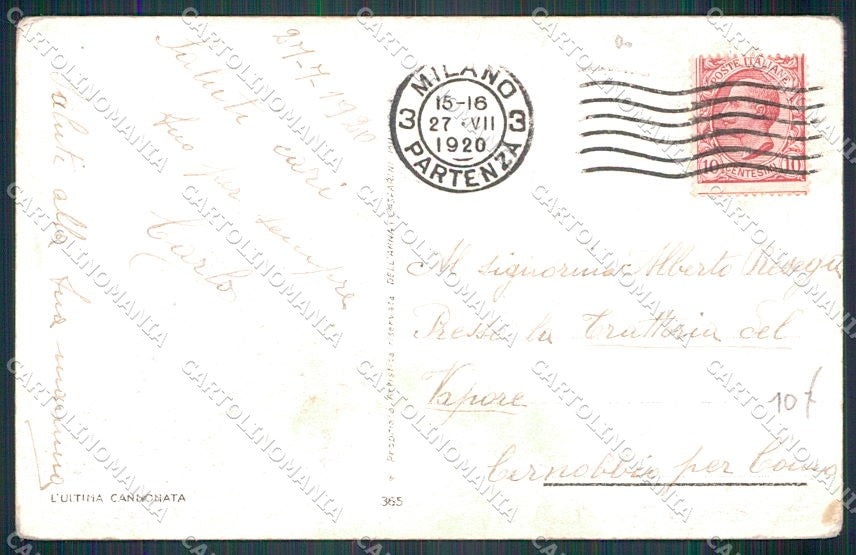 27-7-1920
Saluti cari
tuo per sempre
Carlo
Saluti alla tua mamma
MILANO
15-16
27·VII
1920
3 3
PARTENZA
POSTE ITALIANE
10 CENTESIMI 10
Al signorina Alberto
Presso la Trattoria del
Vapore
10
Cernobbio per Como
Proprietà artistica riservata DELL'ANNA & GASPARINI
L'ULTIMA CANNONATA
365
CARTOLINOMANIA